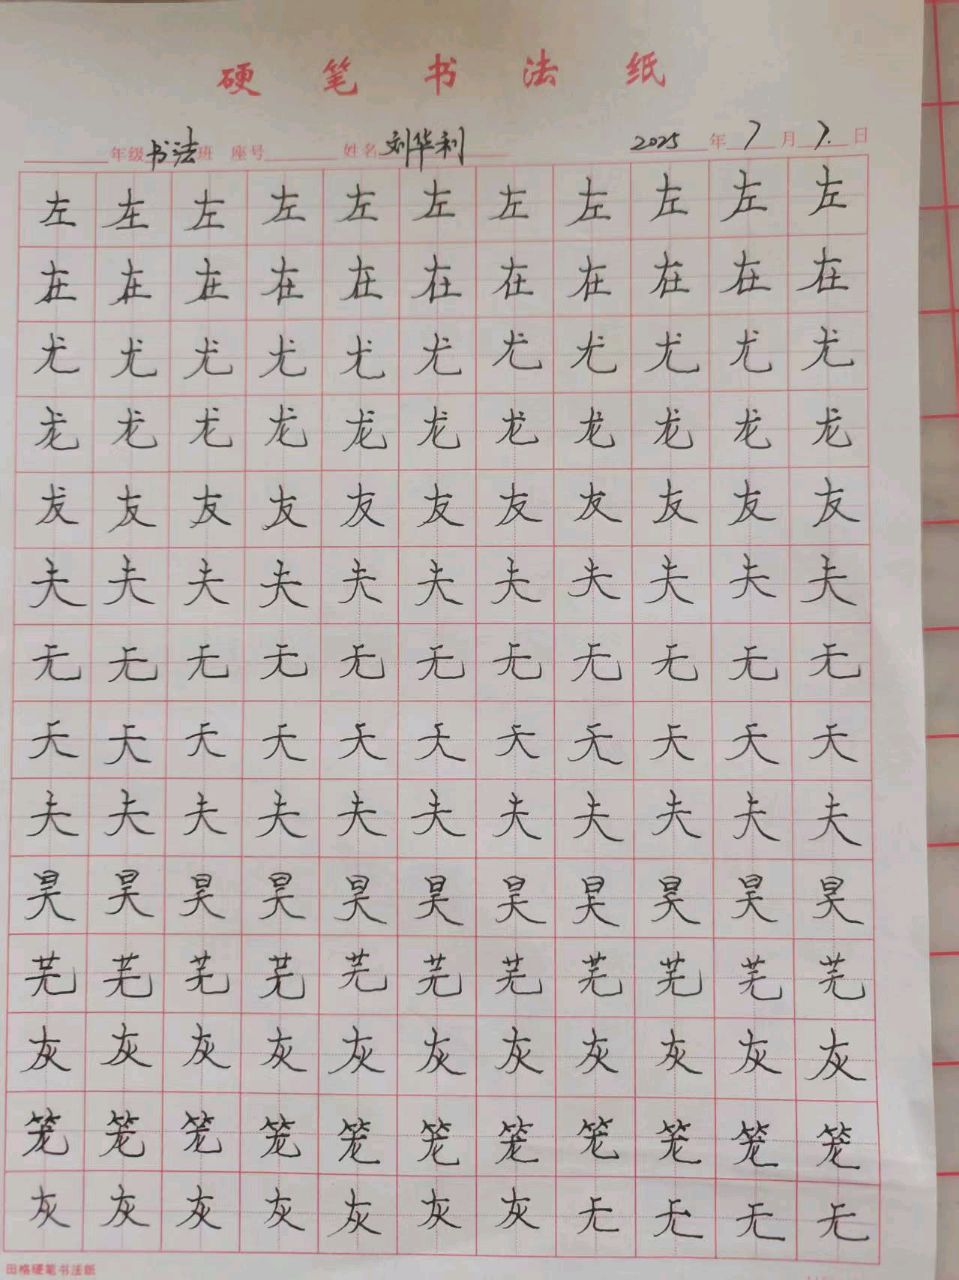 硬笔书法纸
年级书法班 座号 姓名刘华利 2025年7月7日
左左左左左左左左左左左
在在在在在在在在在在在
尤尤尤尤尤尤尤尤尤尤尤
龙龙龙龙龙龙龙龙龙龙龙
友友友友友友友友友友友
夫夫夫夫夫夫夫夫夫夫夫
无无无无无无无无无无无
天天天天天天天天天天天
夫夫夫夫夫夫夫夫夫夫夫
昊昊昊昊昊昊昊昊昊昊昊
芜芜芜芜芜芜芜芜芜芜芜
灰灰灰灰灰灰灰灰灰灰灰
笼笼笼笼笼笼笼笼笼笼笼
灰灰灰灰灰灰灰无无无无
田格硬笔书法纸